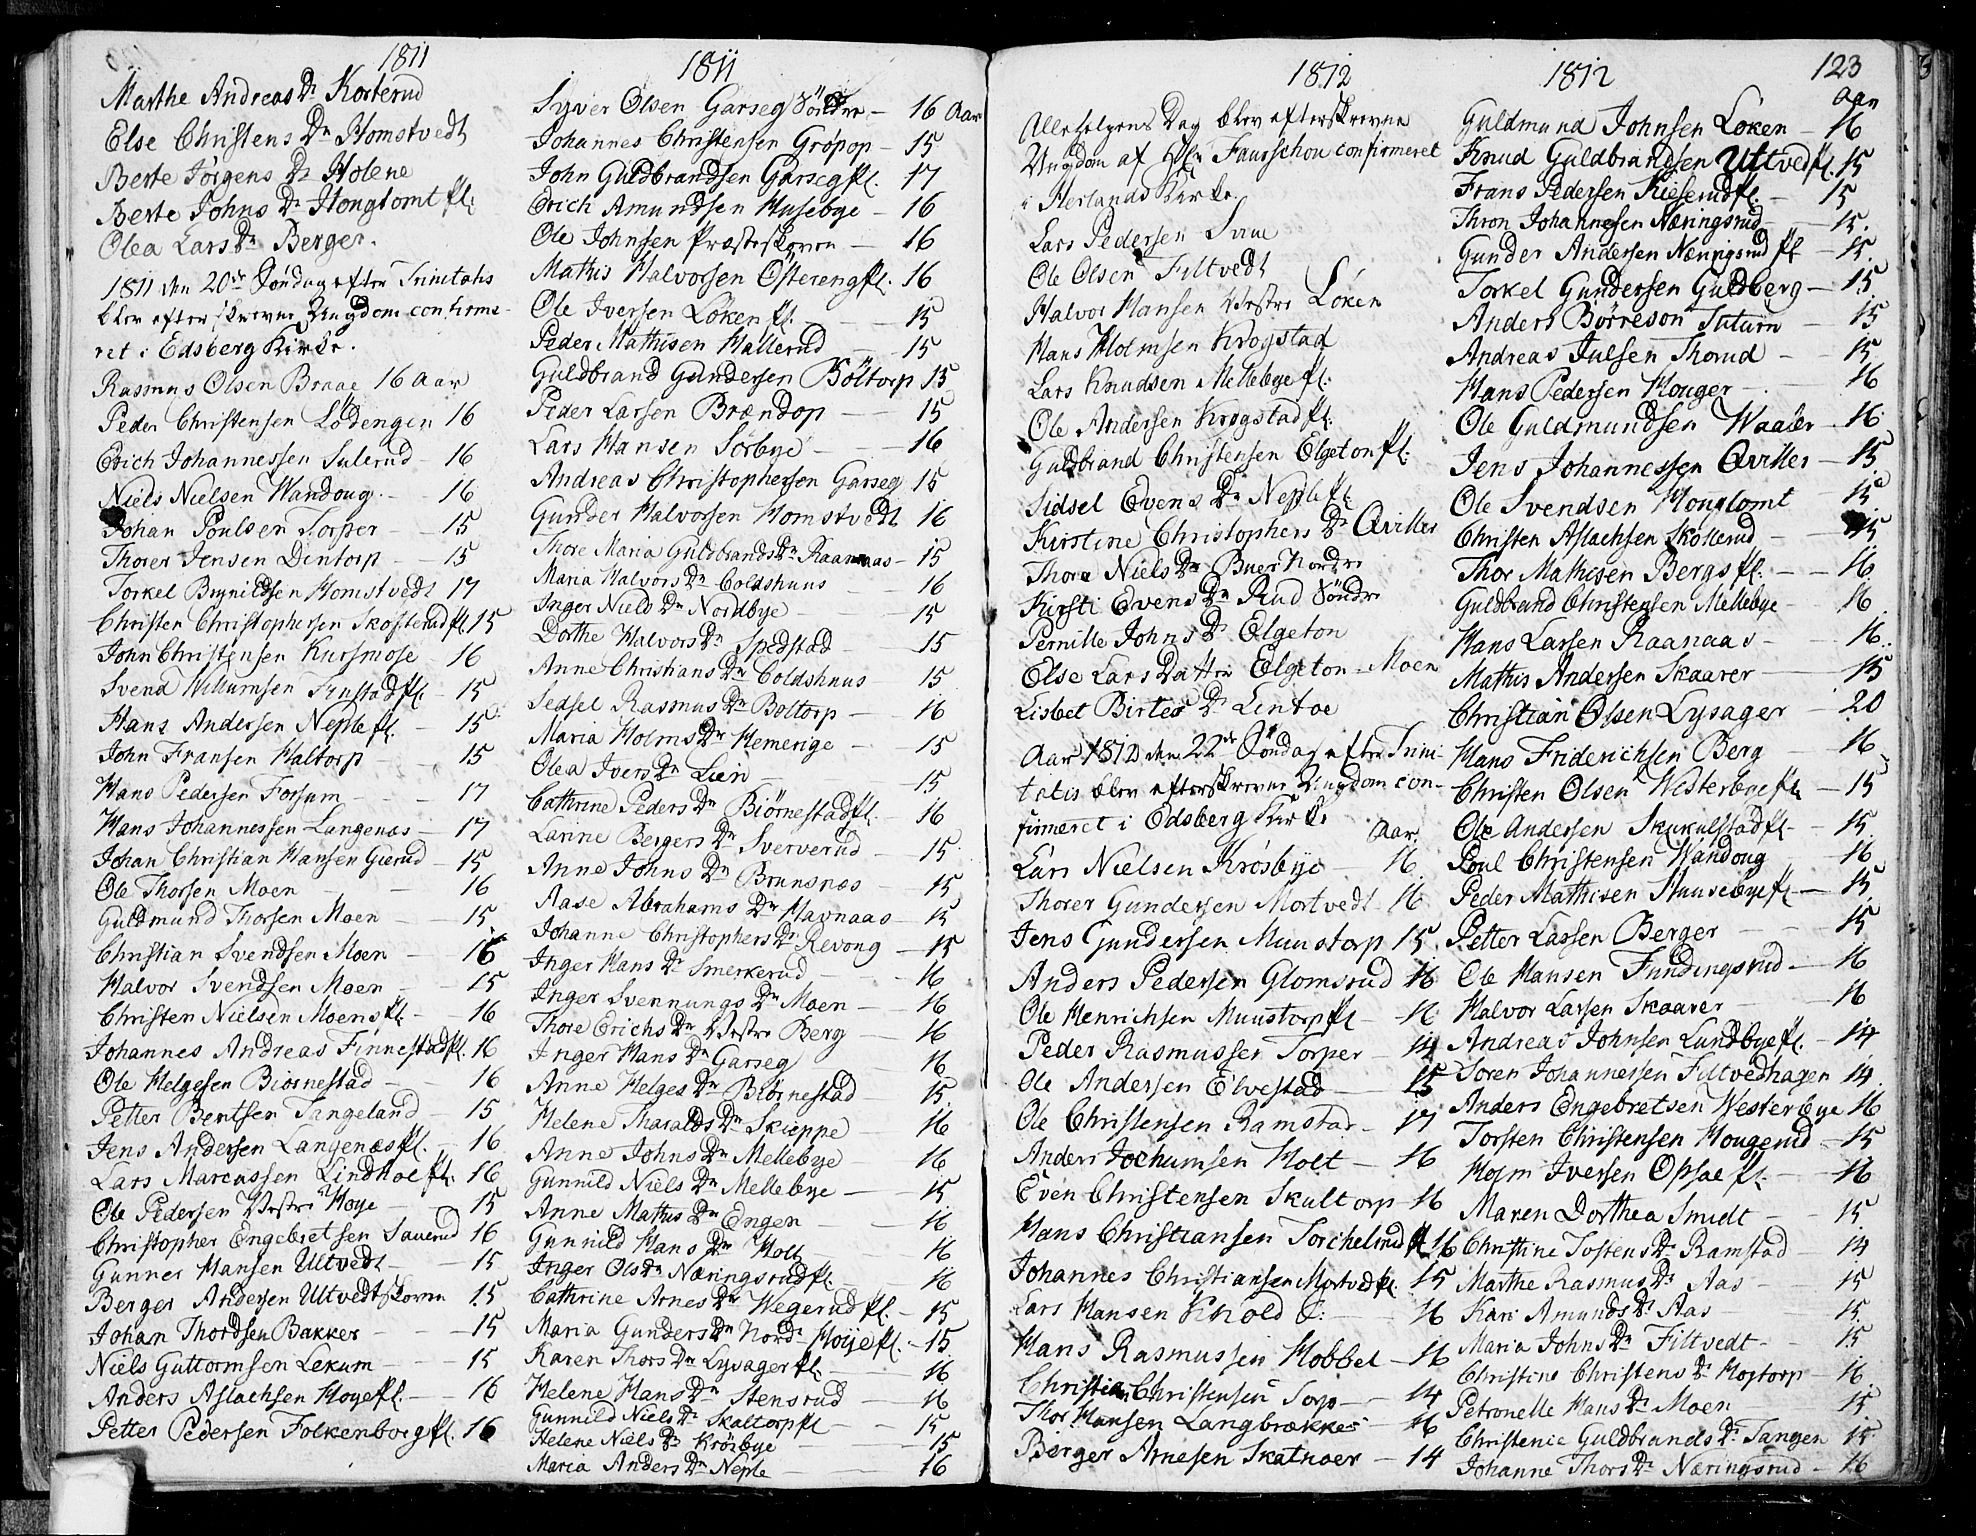 1811
Marthe Andreas Dr Korterud
Else Christens Dr Homstvedt
Berte Jörgens Dr Holene
Berte Johns Dr Honglomt fl:
Olea Lars Dr Berger.
1811 den 20de Söndag efter Trinitatis
blev efterskrevne Ungdom confirme-
ret i Edsberg Kirke.
Rasmus Olsen Braae 16 Aar
Peder Christensen Lödengen 16
Erich Johannessen Sulerud - 16
Niels Nielsen Wandoug. - 16
Johan Poulsen Torper - 15
Thorer Jensen Dentorp - 15
Torkel Brynildsen Homstvedt 17
Christen Christophersen Skofterud fl. 15
John Christensen Kursmose - 16
Svend Willumsen Finstad fl - 15
Hans Andersen Neple fl. - 15
John Fransen Haltorp - 15
Hans Pedersen Forsum - 17
Hans Johannessen Langenæs - 17
Johan Christian Hansen Gierud - 15
Ole Thorsen Moen - 16
Guldmund Thorsen Moen - 15
Christian Svendsen Moen - 16
Halvor Svendsen Moen - 15
Christen Nielsen Moens fl - 16
Johannes Andreas Finnestad fl. 16
Ole Helgesen Biornestad - 16
Petter Bentsen Tangeland - 15
Jens Andersen Langenæs fl. - 16
Lars Marcussen Lindhoe fl. 16
Ole Pedersen Vestre Hoye - 15
Christopher Engebretsen Sauerud 16
Gunner Hansen Ultvedt - 15
Berger Andersen Ultvedtskoven 15
Johan Thordsen Bakker - 15
Niels Guttormsen Lekum - 15
Anders Aslachsen Hoye fl. - 16
Petter Pedersen Folkenborg fl. 16
1811
Syver Olsen Garseg Söndre - 16 Aar
Johannes Christensen Gröpop - 15
John Guldbrandsen Garseg fl. 17
Erich Amundsen Husebye - 16
Ole Johnsen Præsteskoven - 16
Mathis Halvorsen Östereng fl. 16
Ole Iversen Löken fl. - 15
Peder Mathisen Hallerud - 15
Guldbrand Gundersen Böltorp 15
Peder Larsen Brændop - 15
Lars Hansen Sörbye - 16
Andreas Christophersen Garseg 15
Gunder Halvorsen Homstvedt 16
Thore Maria Guldbrands Dr Raanaas - 15
Maria Halvors Dr Coldshuus - 16
Inger Niels Dr Nordbye - 15
Dorthe Halvors Dr Spedstad - 15
Anne Christians Dr Coldshuus - 15
Sedsel Rasmus Dr Boltorp - 16
Maria Holms Dr Hemerige - 15
Olea Ivers Dr Lien - 15
Cathrine Peders Dr Biörnestad fl. 16
Larine Bergers Dr Sververud - 15
Anne Johns Dr Brunsnæs - 15
Aase Abrahams Dr Havnaas - 15
Johanne Christophers Dr Revoug - 15
Inger Hans Dr Smerkerud - 16
Inger Svennungs Dr Moen - 16
Thore Erichs Dr Vestre Berg - 16
Inger Hans Dr Garseg 16
Anne Helges Dr Biörnestad 15
Helene Tharalds Dr Skieppe - 16
Anne Johns Dr Mellebye - 16
Gunnild Niels Dr Mellebye - 15
Anne Mathis Dr Engen - 16
Gunnild Hans Dr Holt - 16
Inger Ols Dr Næringsrud fl. - 16
Cathrine Arnes Dr Wegerud fl. - 15
Maria Gunders Dr Nord: Hoije fl. - 15
Karen Thors Dr Lysager fl - 16
Helene Hans Dr Stensrud - 16
Gunnild Niels Dr Skaltorp fl - 15
Helene Niels Dr Krösbye - 15
Maria Anders Dr Neple - 16
1812
Allehelgens Dag blev efterskrevne
Ungdom af Hr Faurschou confirmeret
i Herlands Kirke.
Lars Pedersen
Ole Olsen Filtvedt
Halvor Hansen Vestre Löken
Hans Holmsen Krogstad
Lars Knudsen Mellebye fl.
Ole Andersen Krogstad fl.
Guldbrand Christensen Elgeton fl.
Sidsel Evens Dr Neple fl
Kirstine Christophers Dr Qviller
Thora Niels Dr Buer Nordre
Kirsti Evens Dr Rud Söndre
Pernille Johns Dr Elgeton
Else Lars Datter Elgeton-Moen
Lisbet Birtes Dr Lentoe
Aar 1812 den 22de Söndag efter Trini-
tatis blev efterskrevne Ungdom con-
firmeret i Edsberg Kirke Aar
Lars Nielsen Krösbye - 16
Thorer Gundersen Mortvedt - 16
Jens Gundersen Muustorp 15
Anders Pedersen Glomsrud 16
Ole Henrichsen Muustorp fl - 16
Peder Rasmussen Torper - 14
Ole Andersen Elvestad - 15
Ole Christensen Ramstad - 17
Anders Jochumsen Holt - 16
Even Christensen Skaltorp - 16
Hans Christiansen Torchelsrud fl 16
Johannes Christiansen Mortved fl. 15
Lars Hansen Knold E: - 16
Hans Rasmussen Hobbel - 16
Christian Christensen Torp - 14
Thor Hansen Langbrække - 16
Berger Arnesen Skatnoer - 14
1812 123
Aar
Guldmund Johnsen Löken - 16
Knud Guldbrandsen Ultved fl. 15
Frans Pedersen Kieserud fl. - 15
Thron Johannesen Næringsrud - 15.
Gunder Andersen Næringsrud fl - 15.
Torkel Gundersen Guldberg - 15
Anders Börreson Tuturn - 15
Andreas Julsen Thorud - 15
Hans Pedersen Houger - 16
Ole Guldmundsen Waaler - 16
Jens Johannessen Qviller - 15
Ole Svendsen Honglomt 15
Christen Aslachsen Skollerud - 15
Thor Mathisen Bergs fl. - 16
Guldbrand Christensen Mellebye - 16
Hans Larsen Raanaas - 16
Mathis Andersen Skaarer - 15
Christian Olsen Lysager - 20
Hans Friderichsen Berg 16
Christen Olsen Westerbye fl - 15
Ole Andersen Skukulstad fl - 15
Poul Christensen Wandoug - 16
Peder Mathisen Huusebye fl - 15
Petter Lassen Berger - 15
Ole Hansen Fundingsrud - 16
Halvor Larsen Skaarer - 16
Andreas Johnsen Lundbye fl. - 14
Soren Johannessen Filtvedhagen 14
Anders Engebretsen Westerbye 16
Torsten Christensen Hougerud - 15
Holm Iversen Opsae fl. - 16
Maren Dorthea Smidt - 15
Christine Tostens Dr Ramstad - 14
Marthe Rasmus Dr Aas - 15
Kari Amunds Dr Aas 15
Maria Johns Dr Filtvedt - 15
Christine Christens Dr Hostorp - 16
Petronelle Hans Dr Moen 15
Christence Guldbrands Dr Tangen 15
Johanne Thors Dr Næringsrud - 16